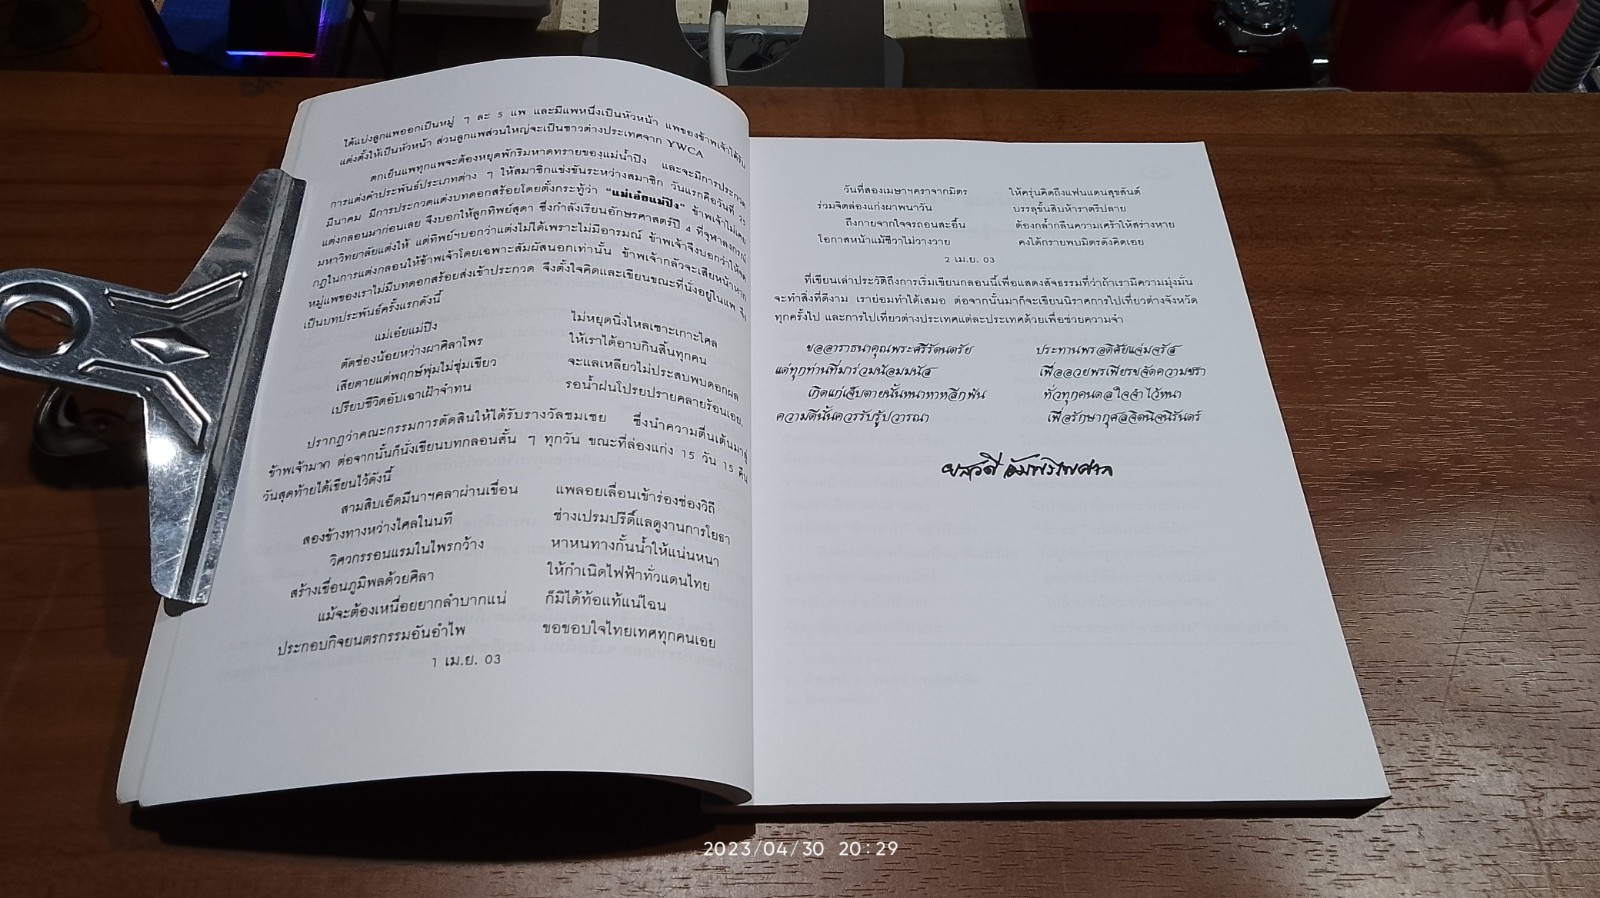 ได้แบ่งลูกแพออกเป็นหมู่ ๆ ละ 5 แพ และมีแพหนึ่งเป็นหัวหน้า แพของข้าพเจ้าได้รับ
แต่งตั้งให้เป็นหัวหน้า ส่วนลูกแพส่วนใหญ่จะเป็นชาวต่างประเทศจาก YWCA
ตกเย็นแพทุกแพจะต้องหยุดพักริมหาดทรายของแม่น้ำปิง และจะมีการประกวด
การแต่งคำประพันธ์ประเภทต่าง ๆ ให้สมาชิกแข่งขันระหว่างสมาชิก วันแรกคือวันที่
มีนาคม มีการประกวดแต่งบทดอกสร้อยโดยตั้งกระทู้ว่า "แม่เอ๋ยแม่ปิง" ข้าพเจ้าไม่เคย
แต่งกลอนมาก่อนเลย จึงบอกให้ลูกทิพย์สุดา ซึ่งกำลังเรียนอักษรศาสตร์ปี 4 ที่จุฬาลงกรณ์
มหาวิทยาลัยแต่งให้ แต่ทิพย์ฯบอกว่าแต่งไม่ได้เพราะไม่มีอารมณ์ ข้าพเจ้าจึงบอกว่าให้บอก
กฎในการแต่งกลอนให้ข้าพเจ้าโดยเฉพาะสัมผัสนอกเท่านั้น ข้าพเจ้ากลัวจะเสียหน้าหากว่า
หมู่แพของเราไม่มีบทดอกสร้อยส่งเข้าประกวด จึงตั้งใจคิดและเขียนขณะที่นั่งอยู่ในแพ ซึ่ง
เป็นบทประพันธ์ครั้งแรกดังนี้
แม่เอ๋ยแม่ปิง ไม่หยุดนิ่งไหลเซาะเกาะไศล
ตัดช่องน้อยหว่างผาศิลาไพร ให้เราได้อาบกินสิ้นทุกคน
เสียดายแต่พฤกษ์พุ่มไม่ชุ่มเขียว จะแลเหลียวไม่ประสบพบดอกผล
เปรียบชีวิตอับเฉาเฝ้าจำทน รอน้ำฝนโปรยปรายคลายร้อนเอย.
ปรากฏว่าคณะกรรมการตัดสินให้ได้รับรางวัลชมเชย ซึ่งนำความตื่นเต้นมาสู่
ข้าพเจ้ามาก ต่อจากนั้นก็นั่งเขียนบทกลอนสั้น ๆ ทุกวัน ขณะที่ล่องแก่ง 15 วัน 15 คืน
วันสุดท้ายได้เขียนไว้ดังนี้
สามสิบเอ็ดมีนาฯคลาผ่านเขื่อน แพลอยเลื่อนเข้าร่องช่องวิถี
สองข้างทางหว่างไศลในนที ช่างเปรมปรีดิ์แลดูงานการโยธา
วิศวกรรอนแรมในไพรกว้าง หาหนทางกั้นน้ำให้แน่นหนา
สร้างเขื่อนภูมิพลด้วยศิลา ให้กำเนิดไฟฟ้าทั่วแดนไทย
แม้จะต้องเหนื่อยยากลำบากแน่ ก็มิได้ท้อแท้แน่ไฉน
ประกอบกิจยนตรกรรมอันอำไพ ขอขอบใจไทยเทศทุกคนเอย
1 เม.ย. 03
วันที่สองเมษาฯคราจากมิตร ให้ครุ่นคิดถึงแฟนแดนสุขสันต์
ร่วมจิตล่องแก่งผาพนาวัน บรรลุขั้นสิบห้าราตรีปลาย
ถึงกายจากใจจรถอนสะอื้น ต้องกล้ำกลืนความเศร้าให้สร่างหาย
โอกาสหน้าแม้ชีวาไม่วางวาย คงได้กรายพบมิตรดังคิดเอย
2 เม.ย. 03
ที่เขียนเล่าประวัติถึงการเริ่มเขียนกลอนนี้เพื่อแสดงสัจธรรมที่ว่าถ้าเรามีความมุ่งมั่น
จะทำสิ่งที่ดีงาม เราย่อมทำได้เสมอ ต่อจากนั้นมาก็จะเขียนนิราศการไปเที่ยวต่างจังหวัด
ทุกครั้งไป และการไปเที่ยวต่างประเทศแต่ละประเทศด้วยเพื่อช่วยความจำ
ขออาราธนาคุณพระศรีรัตนตรัย ประทานพรอดิศัยแจ่มจรัส
แด่ทุกท่านที่มาร่วมน้อมมนัส เพื่ออวยพรเพียรขจัดความชรา
เกิดแก่เจ็บตายนั้นหนาหาหลีกพ้น ทั่วทุกคนดลใจจำไว้หนา
ความดีนั้นควรรับรู้ปวารณา เพื่อรักษากุศลจิตนิจนิรันดร์
2023/04/30 20:29